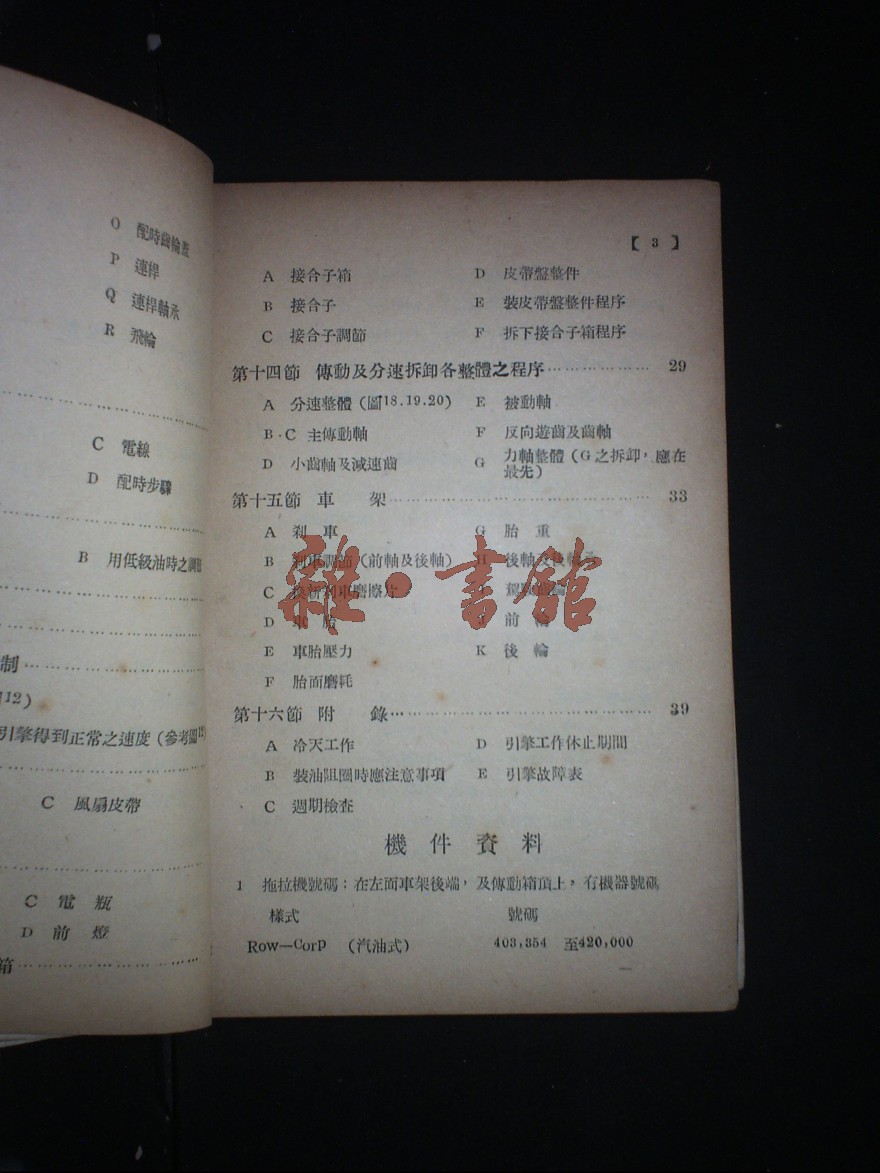 O 配時齒輪蓋
P 連桿
Q 連桿軸承
R 飛輪
C 電線
D 配時步驟
B 用低級油時之調
制
12)
引擎得到正常之速度（參考圖
C 風扇皮帶
C 電 瓶
D 前 燈
箱
【 3 】
A 接合子箱 D 皮帶盤整件
B 接合子 E 裝皮帶盤整件程序
C 接合子調節 F 拆下接合子箱程序
第十四節 傳動及分速拆卸各整體之程序 29
A 分速整體（圖18.19.20） E 被動軸
B·C 主傳動軸 F 反向遊齒及齒軸
D 小齒軸及減速齒 G 力軸整體（G之拆卸，應在
最先）
第十五節 車 架 33
A 刹 車 G 胎 重
B 刹車調節（前軸及後軸） H 後軸及後
C 換新刹車磨擦片
D 車 胎 J 前 輪
E 車胎壓力 K 後 輪
F 胎面磨耗
雜·書館
第十六節 附 錄 39
A 冷天工作 D 引擎工作休止期間
B 裝油阻圈時應注意事項 E 引擎故障表
C 週期檢查
機 件 資 料
1 拖拉機號碼：在左面車架後端，及傳動箱頂上，有機器號碼
樣式 號碼
Row—Corp （汽油式） 403,354 至420,000